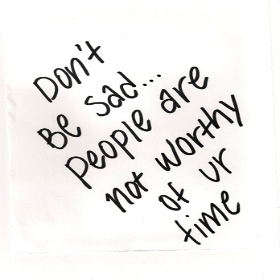 Don't
Be Sad...
People are
not worthy
of ur
time